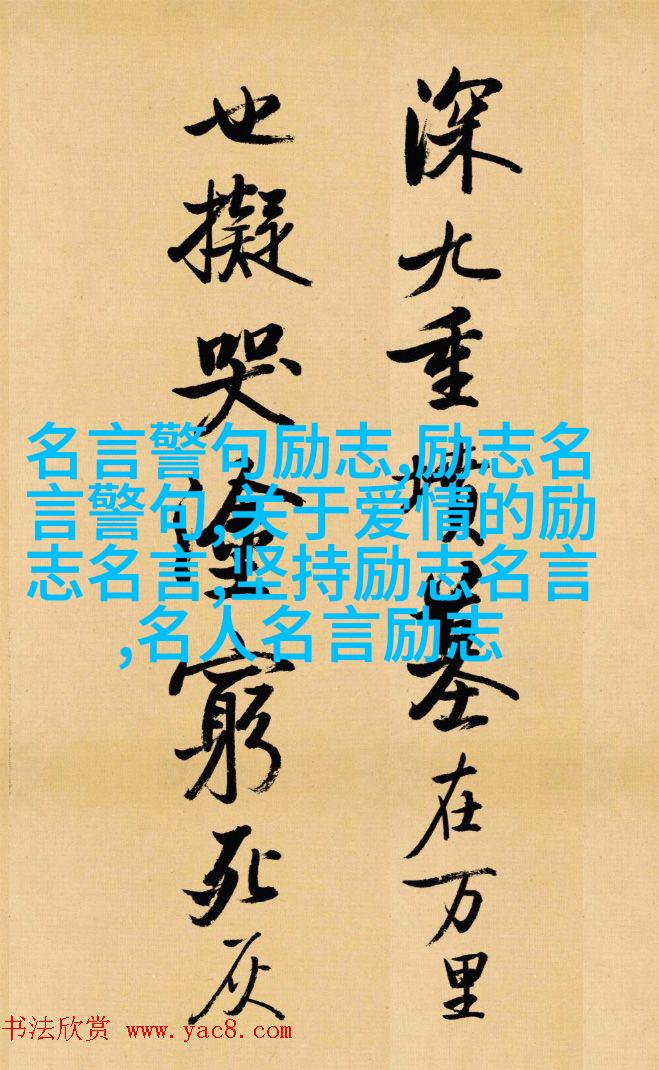 深九重墳墓在万里
也擬哭塗窮死灰
名言警句励志,励志名
言警句,关于爱情的励
志名言,坚持励志名言
,名人名言励志
书法欣赏 www.yac8.com